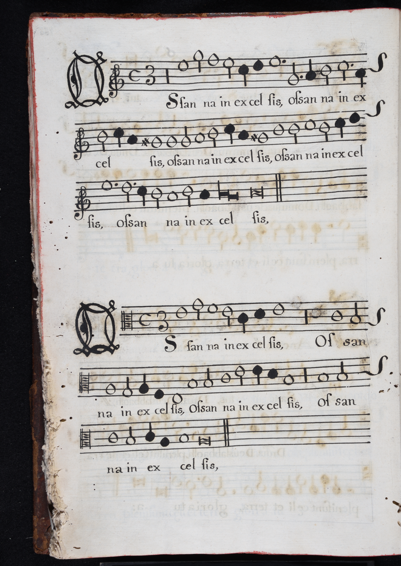 O Ssan na in ex cel sis, ossan na in ex
cel sis, ossan na in ex cel sis, ossan na in ex cel
sis, ossan na in ex cel sis,
O S san na in ex cel sis, Os san
na in ex cel sis, Ossan na in ex cel sis, Os san
na in ex cel sis,